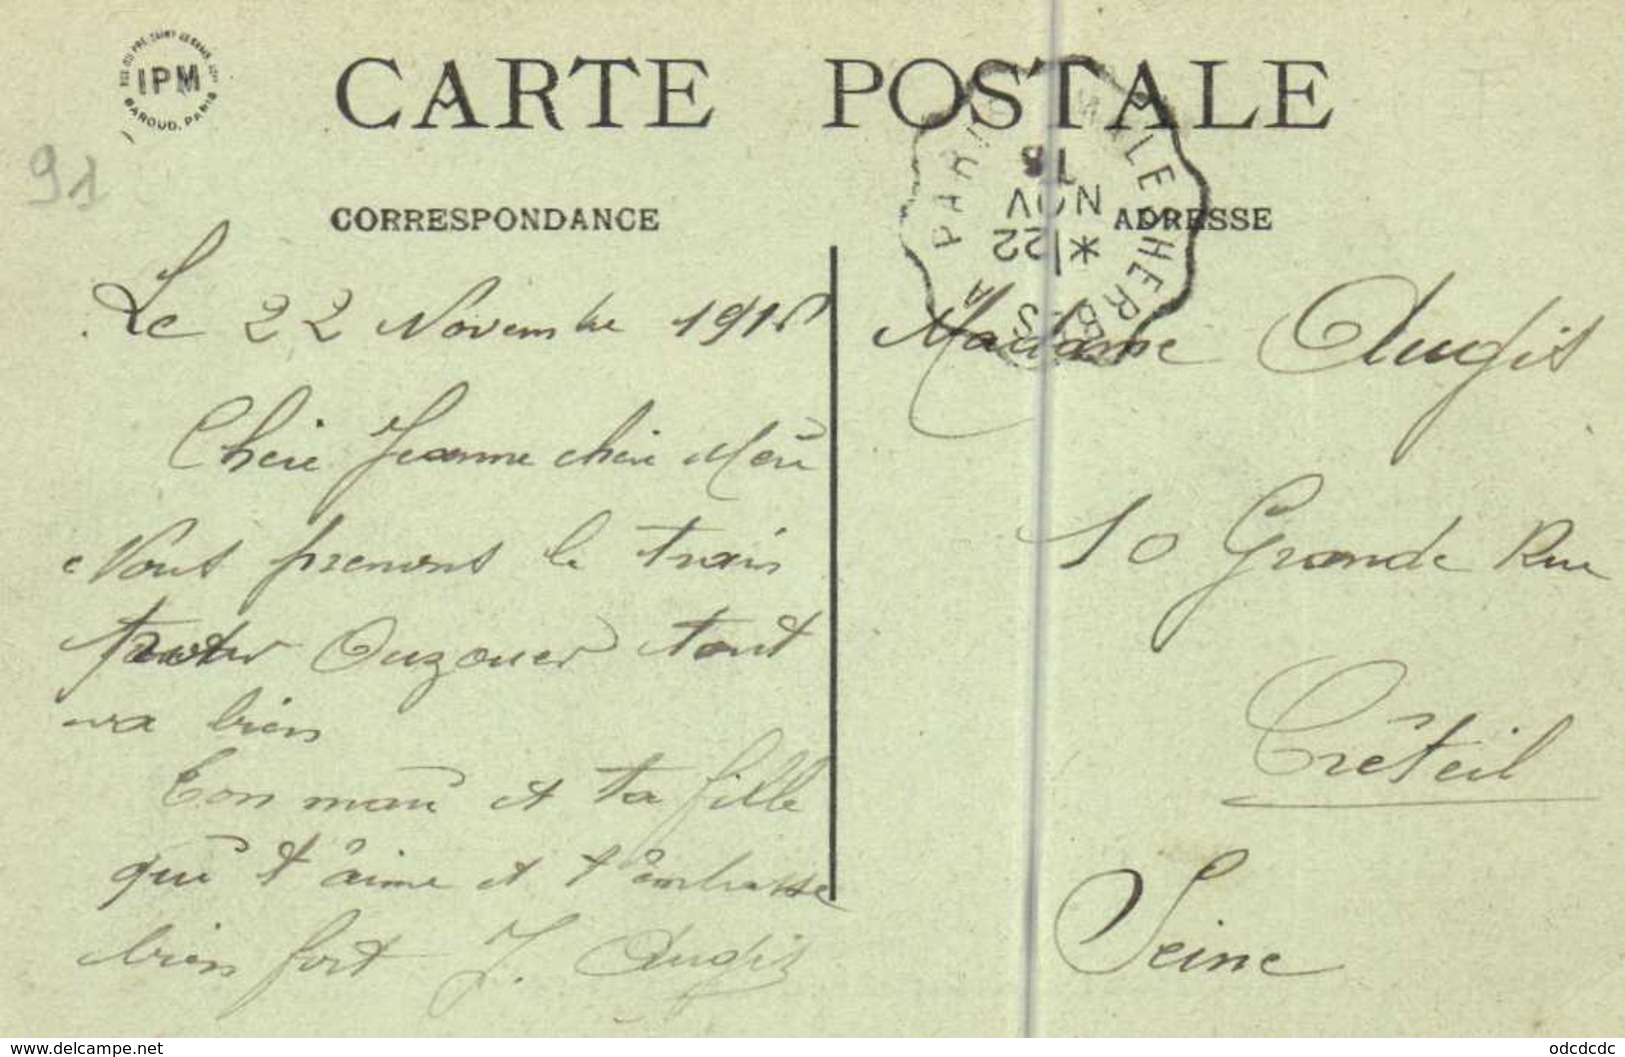 IPM
BAROUD. PARIS
CARTE POSTALE
91
CORRESPONDANCE
ADRESSE
PARIS MALESHERBES A
*22
NOV
18
Le 22 Novembre 1918
Chère Jeanne chère Mère
Nous prenons le train
Ouzouer tout
va bien
Ton mari et ta fille
qui t'aime et t'embrasse
bien fort J. Augis
Madame Augis
10 Grande Rue
Créteil
Seine
www.delcampe.net
odcdcdc